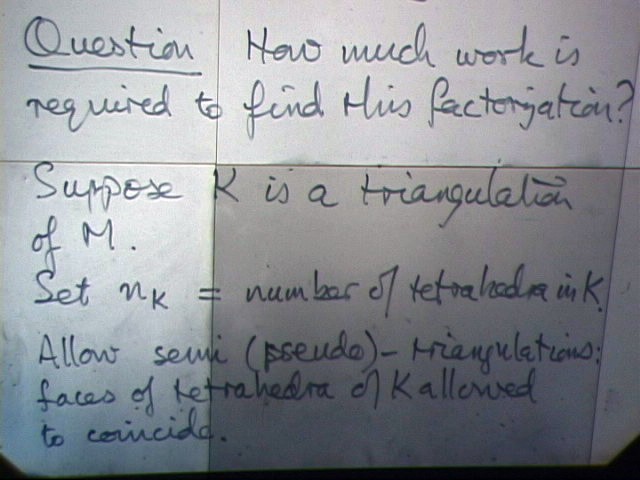 Question How much work is
required to find this factorization?
Suppose K is a triangulation
of M.
Set n_K = number of tetrahedra in K.
Allow semi (pseudo)-triangulations:
faces of tetrahedra of K allowed
to coincide.